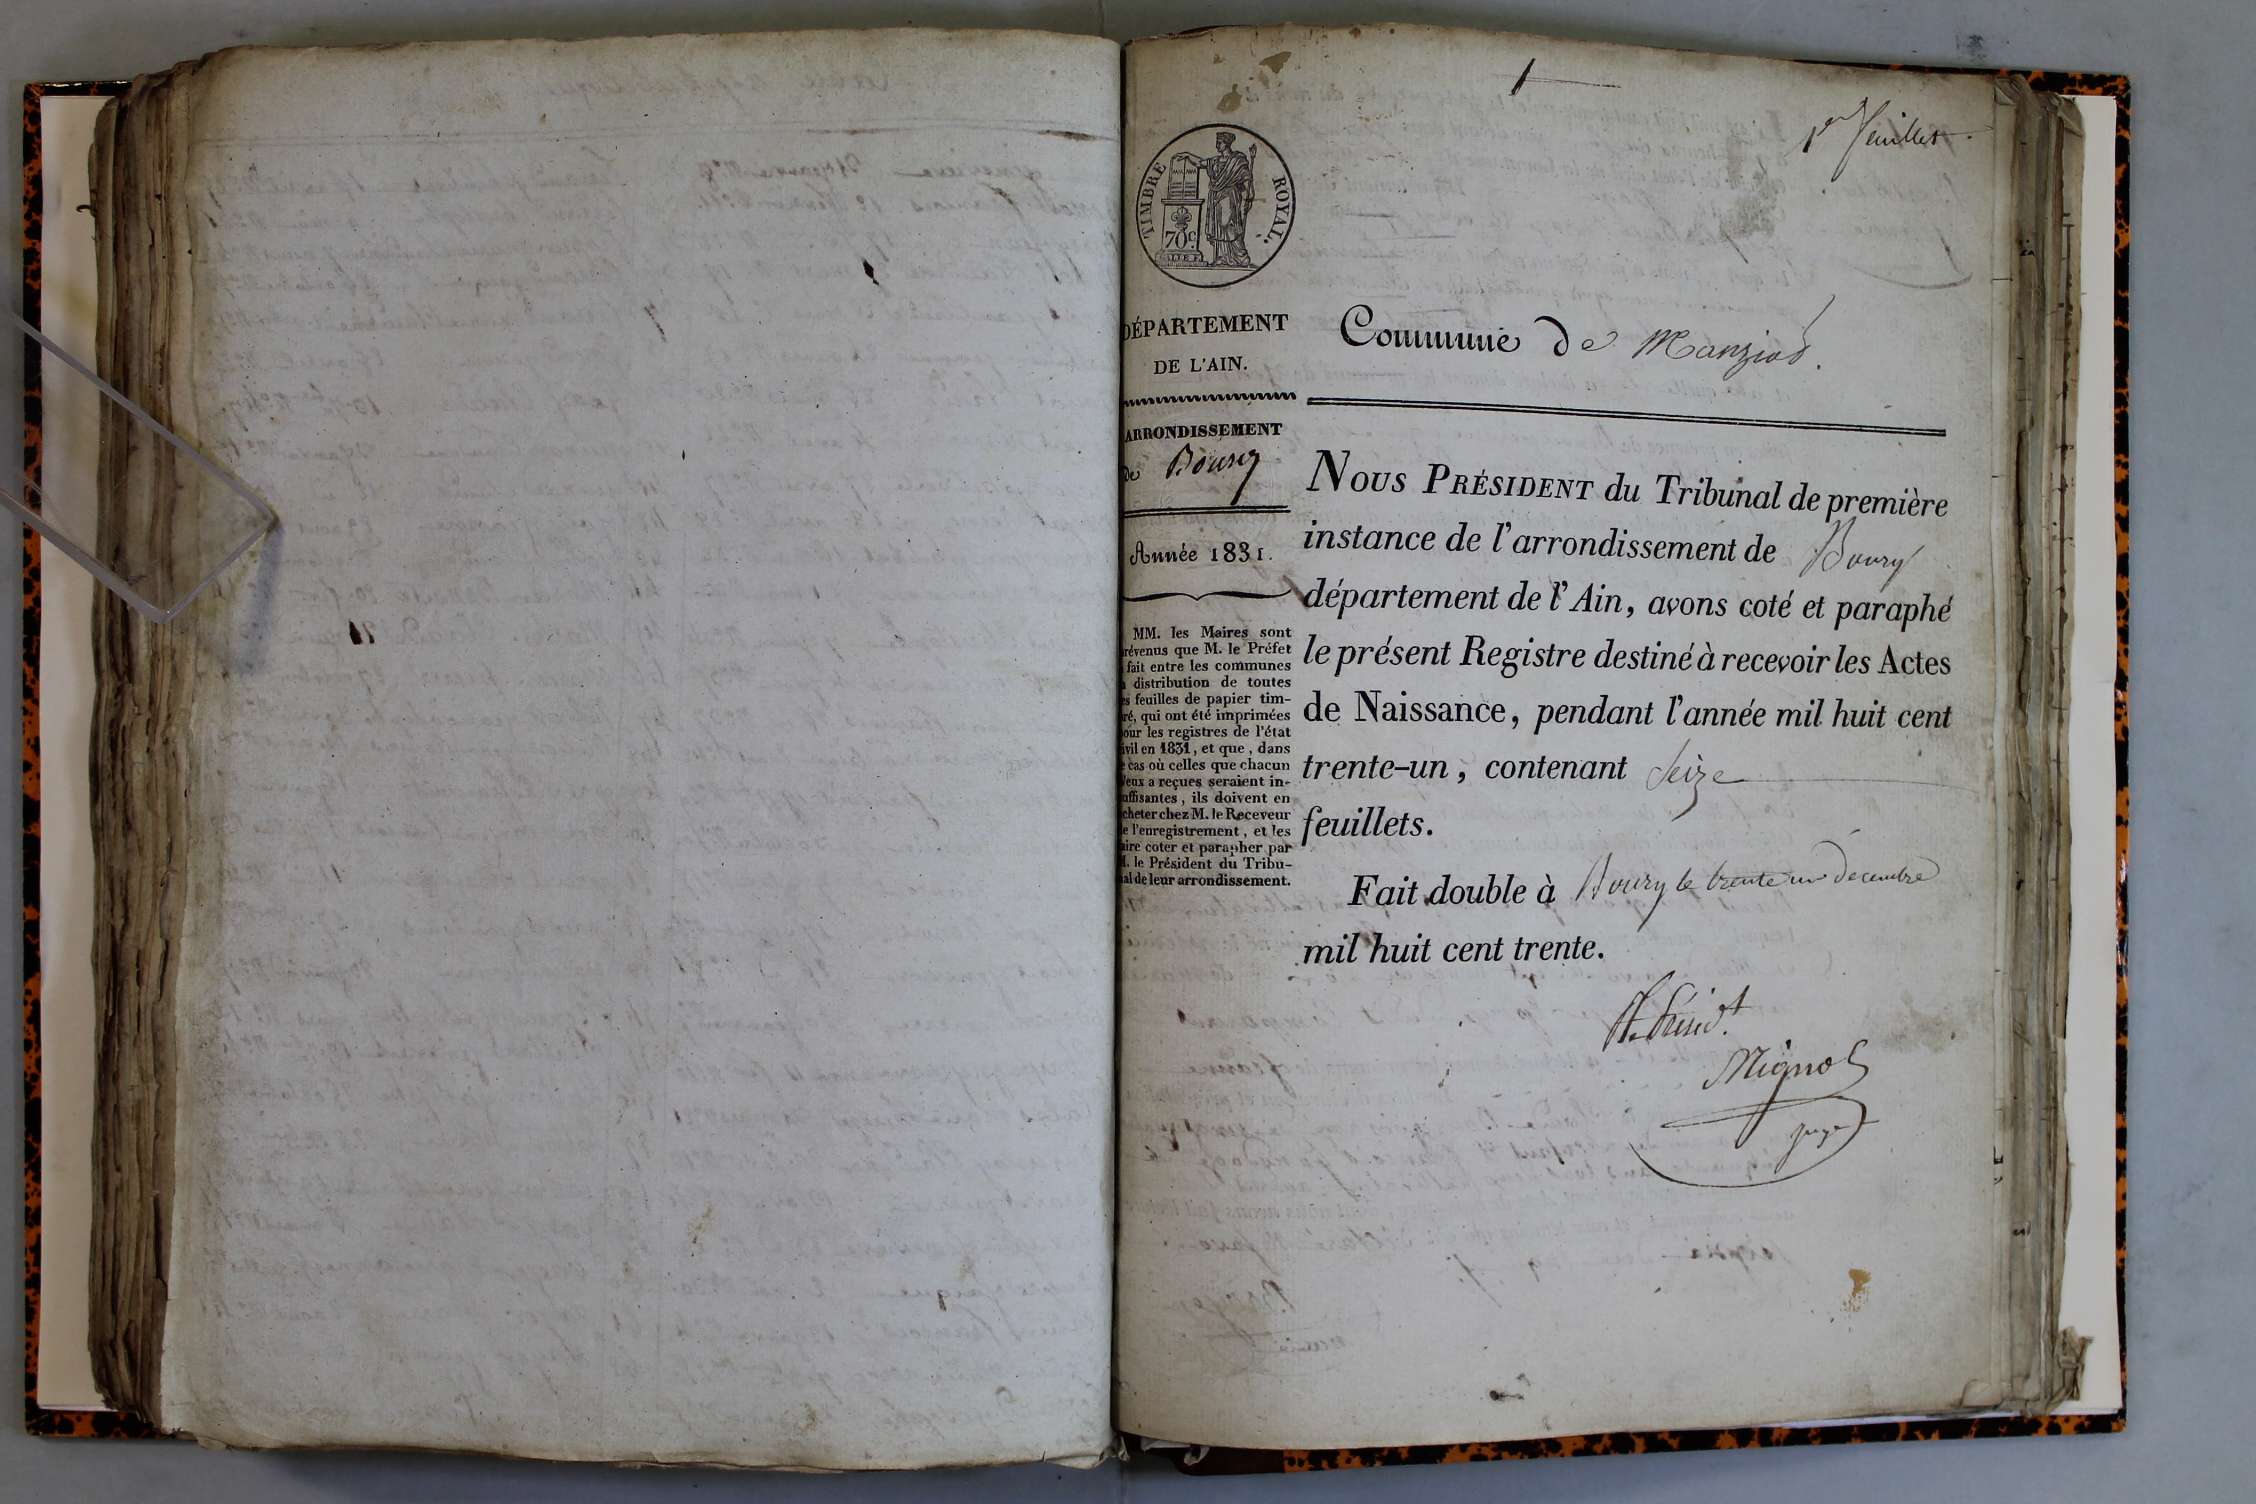 1
1er feuillet
TIMBRE ROYAL.
70c.
DÉPARTEMENT
DE L'AIN.
ARRONDISSEMENT
de Bourg
Année 1831.
MM. les Maires sont
révenus que M. le Préfet
fait entre les communes
distribution de toutes
es feuilles de papier tim-
ré, qui ont été imprimées
our les registres de l'état
ivil en 1831, et que, dans
e cas où celles que chacun
d'eux a reçues seraient in-
uffisantes, ils doivent en
cheter chez M. le Receveur
e l'enregistrement, et les
aire coter et parapher par
M. le Président du Tribu-
nal de leur arrondissement.
Commune de Manziat.
NOUS PRÉSIDENT du Tribunal de première
instance de l'arrondissement de Bourg
département de l'Ain, avons coté et paraphé
le présent Registre destiné à recevoir les Actes
de Naissance, pendant l'année mil huit cent
trente-un, contenant Seize
feuillets.
Fait double à Bourg le trente un décembre
mil huit cent trente.
Mignot
juge